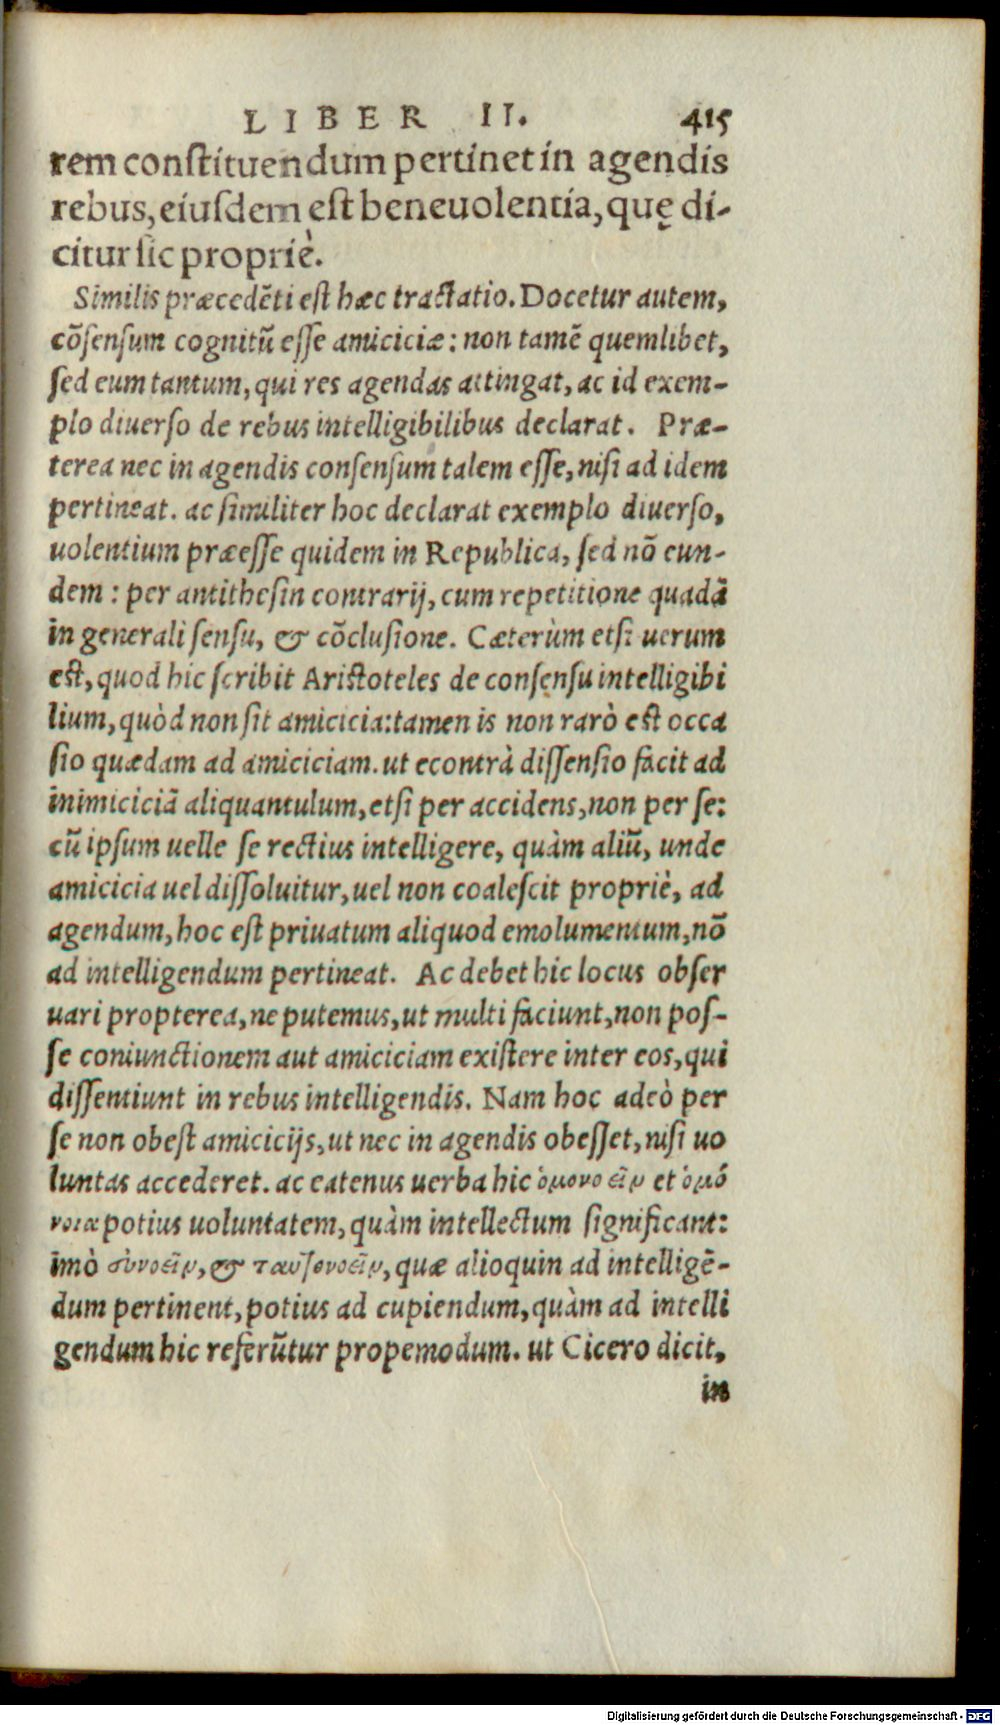 LIBER II. 415
rem conſtituendum pertinet in agendis
rebus, eiuſdem eſt beneuolentia, quę di-
citur ſic propriè.
Similis præcedẽti eſt hæc tractatio. Docetur autem,
cõſenſum cognitũ eſſe amiciciæ: non tamẽ quemlibet,
ſed eum tantum, qui res agendas attingat, ac id exem-
plo diuerſo de rebus intelligibilibus declarat. Præ-
terea nec in agendis conſenſum talem eſſe, niſi ad idem
pertineat. ac ſimiliter hoc declarat exemplo diuerſo,
uolentium præeſſe quidem in Republica, ſed nõ eun-
dem: per antitheſin contrarij, cum repetitione quadã
in generali ſenſu, & cõcluſione. Cæterùm etſi uerum
eſt, quod hic ſcribit Ariſtoteles de conſenſu intelligibi
lium, quòd non ſit amicicia: tamen is non rarò eſt occa
ſio quædam ad amiciciam. ut econtrà diſſenſio facit ad
inimiciciã aliquantulum, etſi per accidens, non per ſe:
cũ ipſum uelle ſe rectius intelligere, quàm aliũ, unde
amicicia uel diſſoluitur, uel non coaleſcit propriè, ad
agendum, hoc eſt priuatum aliquod emolumentum, nõ
ad intelligendum pertineat. Ac debet hic locus obſer
uari propterea, ne putemus, ut multi faciunt, non poſ-
ſe coniunctionem aut amiciciam exiſtere inter eos, qui
diſſentiunt in rebus intelligendis. Nam hoc adeò per
ſe non obeſt amicicijs, ut nec in agendis obeſſet, niſi uo
luntas accederet. ac eatenus uerba hic ὁμονοεῖν et ὁμό
νοια potius uoluntatem, quàm intellectum ſignificant:
imò σύνοεῖν, & ταυτονοεῖν, quæ alioquin ad intelligẽ-
dum pertinent, potius ad cupiendum, quàm ad intelli
gendum hic referũtur propemodum. ut Cicero dicit,
in
Digitalisierung gefördert durch die Deutsche Forschungsgemeinschaft - DFG